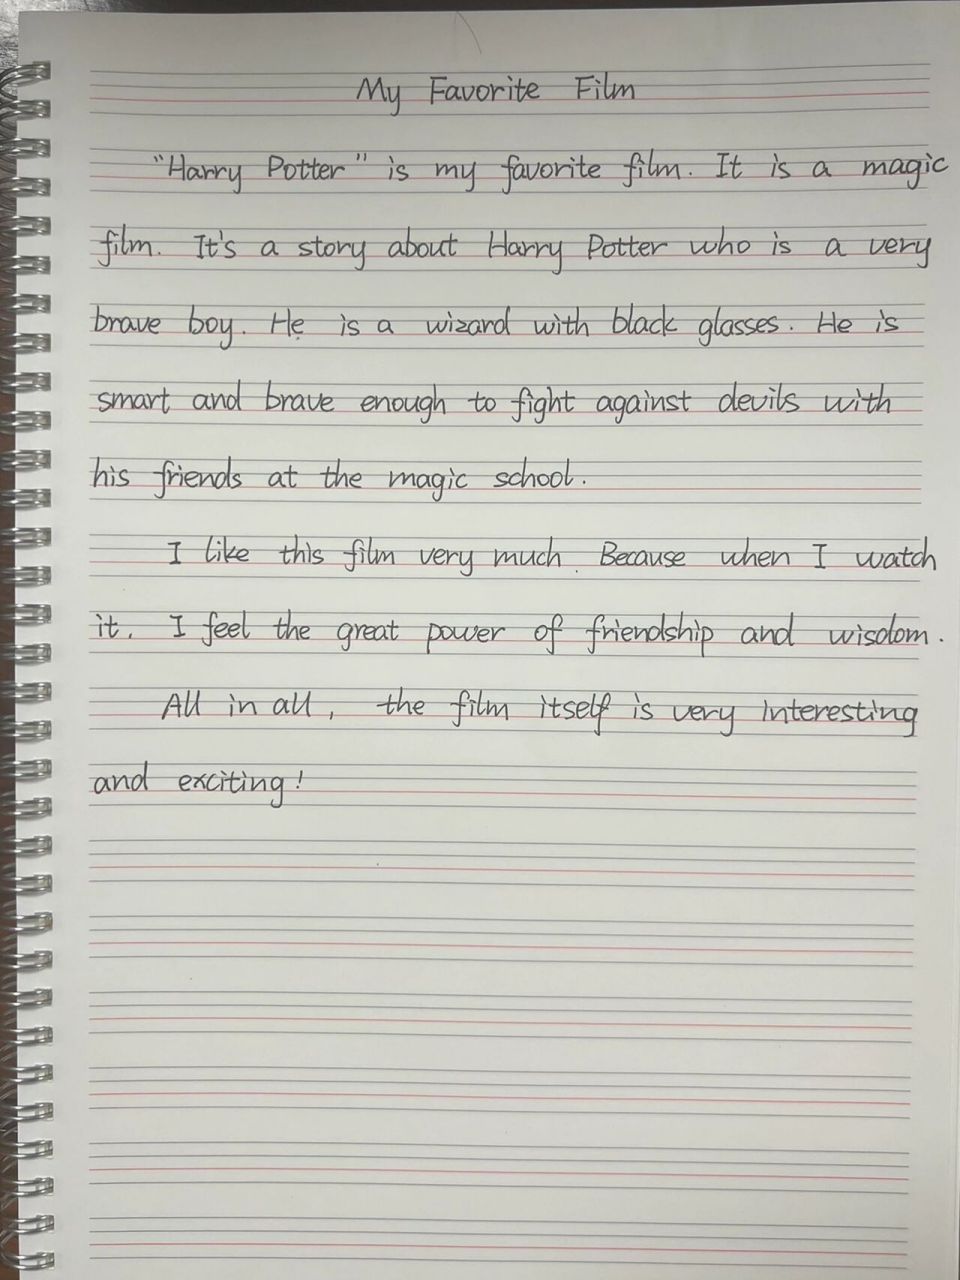 My Favorite Film
"Harry Potter" is my favorite film. It is a magic
film. It's a story about Harry Potter who is a very
brave boy. He is a wizard with black glasses. He is
smart and brave enough to fight against devils with
his friends at the magic school.
I like this film very much. Because when I watch
it. I feel the great power of friendship and wisdom.
All in all, the film itself is very interesting
and exciting!